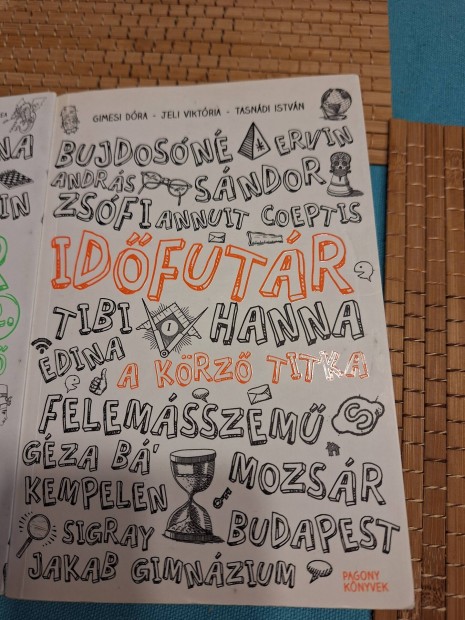 GIMESI DÓRA - JELI VIKTÓRIA - TASNÁDI ISTVÁN
BUJDOSÓNÉ ERVIN
ANDRÁS SÁNDOR
ZSÓFI ANNUIT COEPTIS
IDŐFUTÁR
TIBI HANNA
EDINA
A KÖRZŐ TITKA
FELEMÁSSZEMŰ
GÉZA BÁ'
MOZSÁR
KEMPELEN
SIGRAY BUDAPEST
JAKAB GIMNÁZIUM
PAGONY
KÖNYVEK